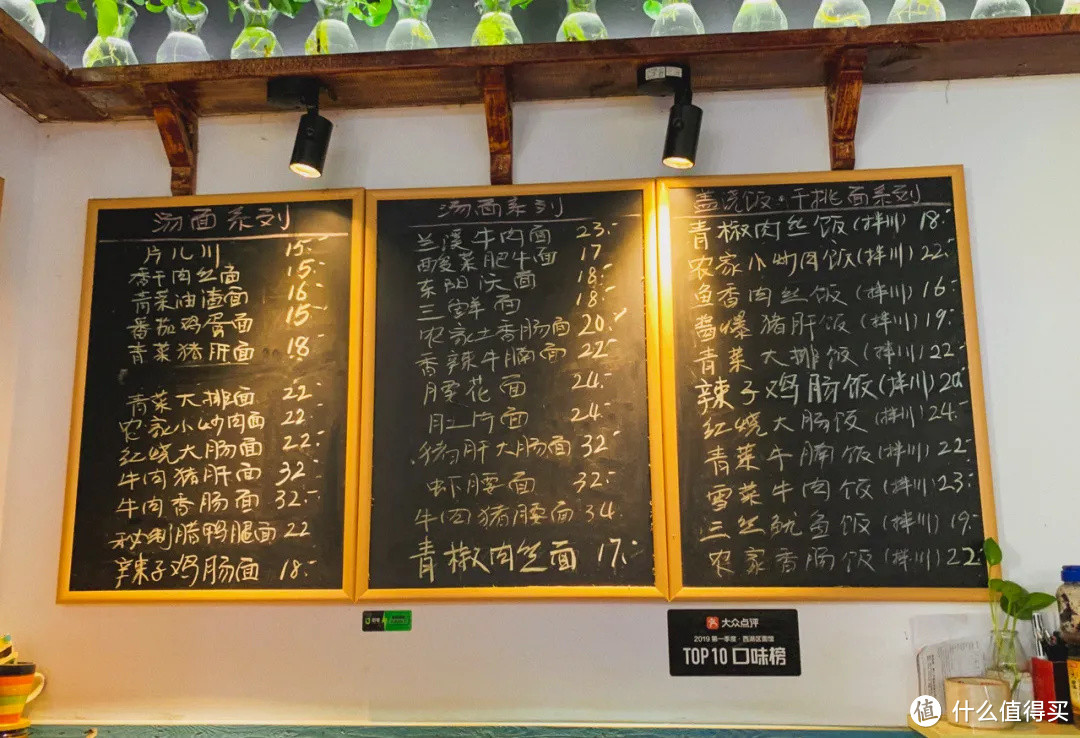 汤面系列
片儿川 15.-
香干肉丝面 15.-
青菜油渣面 16.-
番茄鸡蛋面 15.-
青菜猪肝面 18.-
青菜大排面 22.-
农家小炒肉面 22.-
红烧大肠面 22.-
牛肉猪肝面 32.-
牛肉香肠面 32.-
秘制腊鸭腿面 22
辣子鸡肠面 18.-
汤面系列
兰溪牛肉面 23.-
酸菜肥牛面 17
东阳沃面 18.-
三鲜面 18.-
农家土香肠面 20.-
香辣牛腩面 22.-
腰花面 24.-
肚片面 24.-
猪肝大肠面 32.-
虾腰面 32.-
牛肉猪腰面 34.-
青椒肉丝面 17.-
盖浇饭·干挑面系列
青椒肉丝饭(拌川) 18.-
农家小炒肉饭(拌川) 22.-
鱼香肉丝饭(拌川) 16.-
酱爆猪肝饭(拌川) 19.-
青菜大排饭(拌川) 22.-
辣子鸡肠饭(拌川) 20.-
红烧大肠饭(拌川) 24.-
青菜牛腩饭(拌川) 22.-
雪菜牛肉饭(拌川) 23.-
三丝鱿鱼饭(拌川) 19.-
农家香肠饭(拌川) 22.-
大众点评
2019 第一季度·西湖区面馆
TOP10 口味榜
值 什么值得买